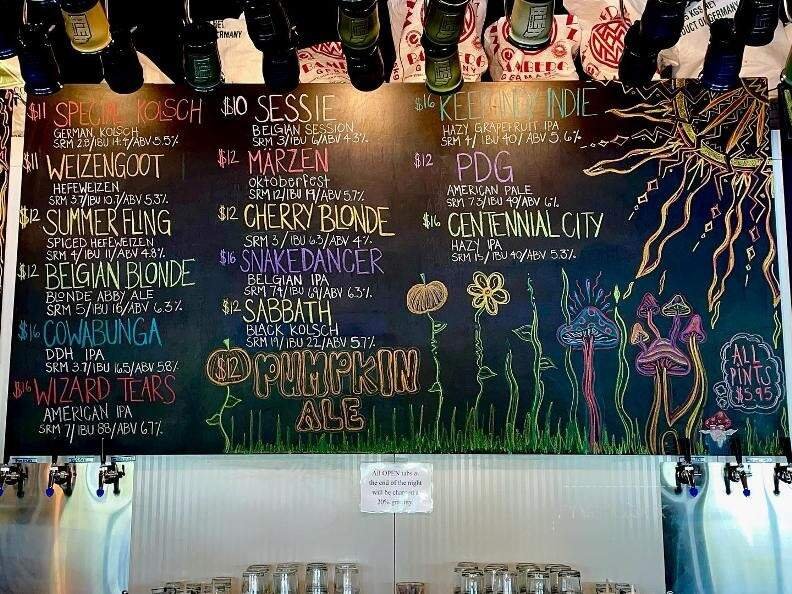 GERMANY
BAMBERG
GERMANY
BAMBERG
GERMANY
BAMBERG
GERMANY
PRODUCT OF GERMANY
$11 SPECIAL KOLSCH
GERMAN KOLSCH
SRM 2.8/IBU 14.4/ABV 5.5%
$11 WEIZENGOOT
HEFEWEIZEN
SRM 3.7/IBU 10.7/ABV 5.3%
$12 SUMMER FLING
SPICED HEFEWEIZEN
SRM 4/IBU 11/ABV 4.8%
$12 BELGIAN BLONDE
BLONDE ABBY ALE
SRM 5/IBU 18/ABV 6.3%
$16 COWABUNGA
DDH IPA
SRM 3.7/IBU 16.5/ABV 5.8%
$16 WIZARD TEARS
AMERICAN IPA
SRM 7/IBU 88/ABV 6.7%
$10 SESSIE
BELGIAN SESSION
SRM 3/IBU 6/ABV 4.3%
$12 MARZEN
OKTOBERFEST
SRM 12/IBU 19/ABV 5.7%
$12 CHERRY BLONDE
SRM 3/IBU 6.3/ABV 4%
$16 SNAKEDANCER
BELGIAN IPA
SRM 7.4/IBU 69/ABV 6.3%
$12 SABBATH
BLACK KOLSCH
SRM 19/IBU 22/ABV 5.7%
$12 PUMPKIN
ALE
$16 KEEP INDY INDIE
HAZY GRAPEFRUIT IPA
SRM 4/IBU 40/ABV 5.6%
$12 PDG
AMERICAN PALE
SRM 7.3/IBU 49/ABV 6%
$16 CENTENNIAL CITY
HAZY IPA
SRM 15/IBU 40/ABV 5.3%
ALL
PINTS
$5.95
All OPEN tabs at
the end of the night
will be charged a
20% gratuity.